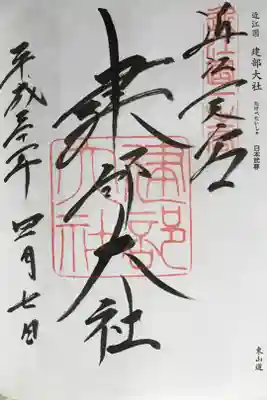 近江国 建部大社 たけべたいしゃ 日本武尊
東山道
近江一之宮
建部大社
建部大社
平成三十一年 四月七日